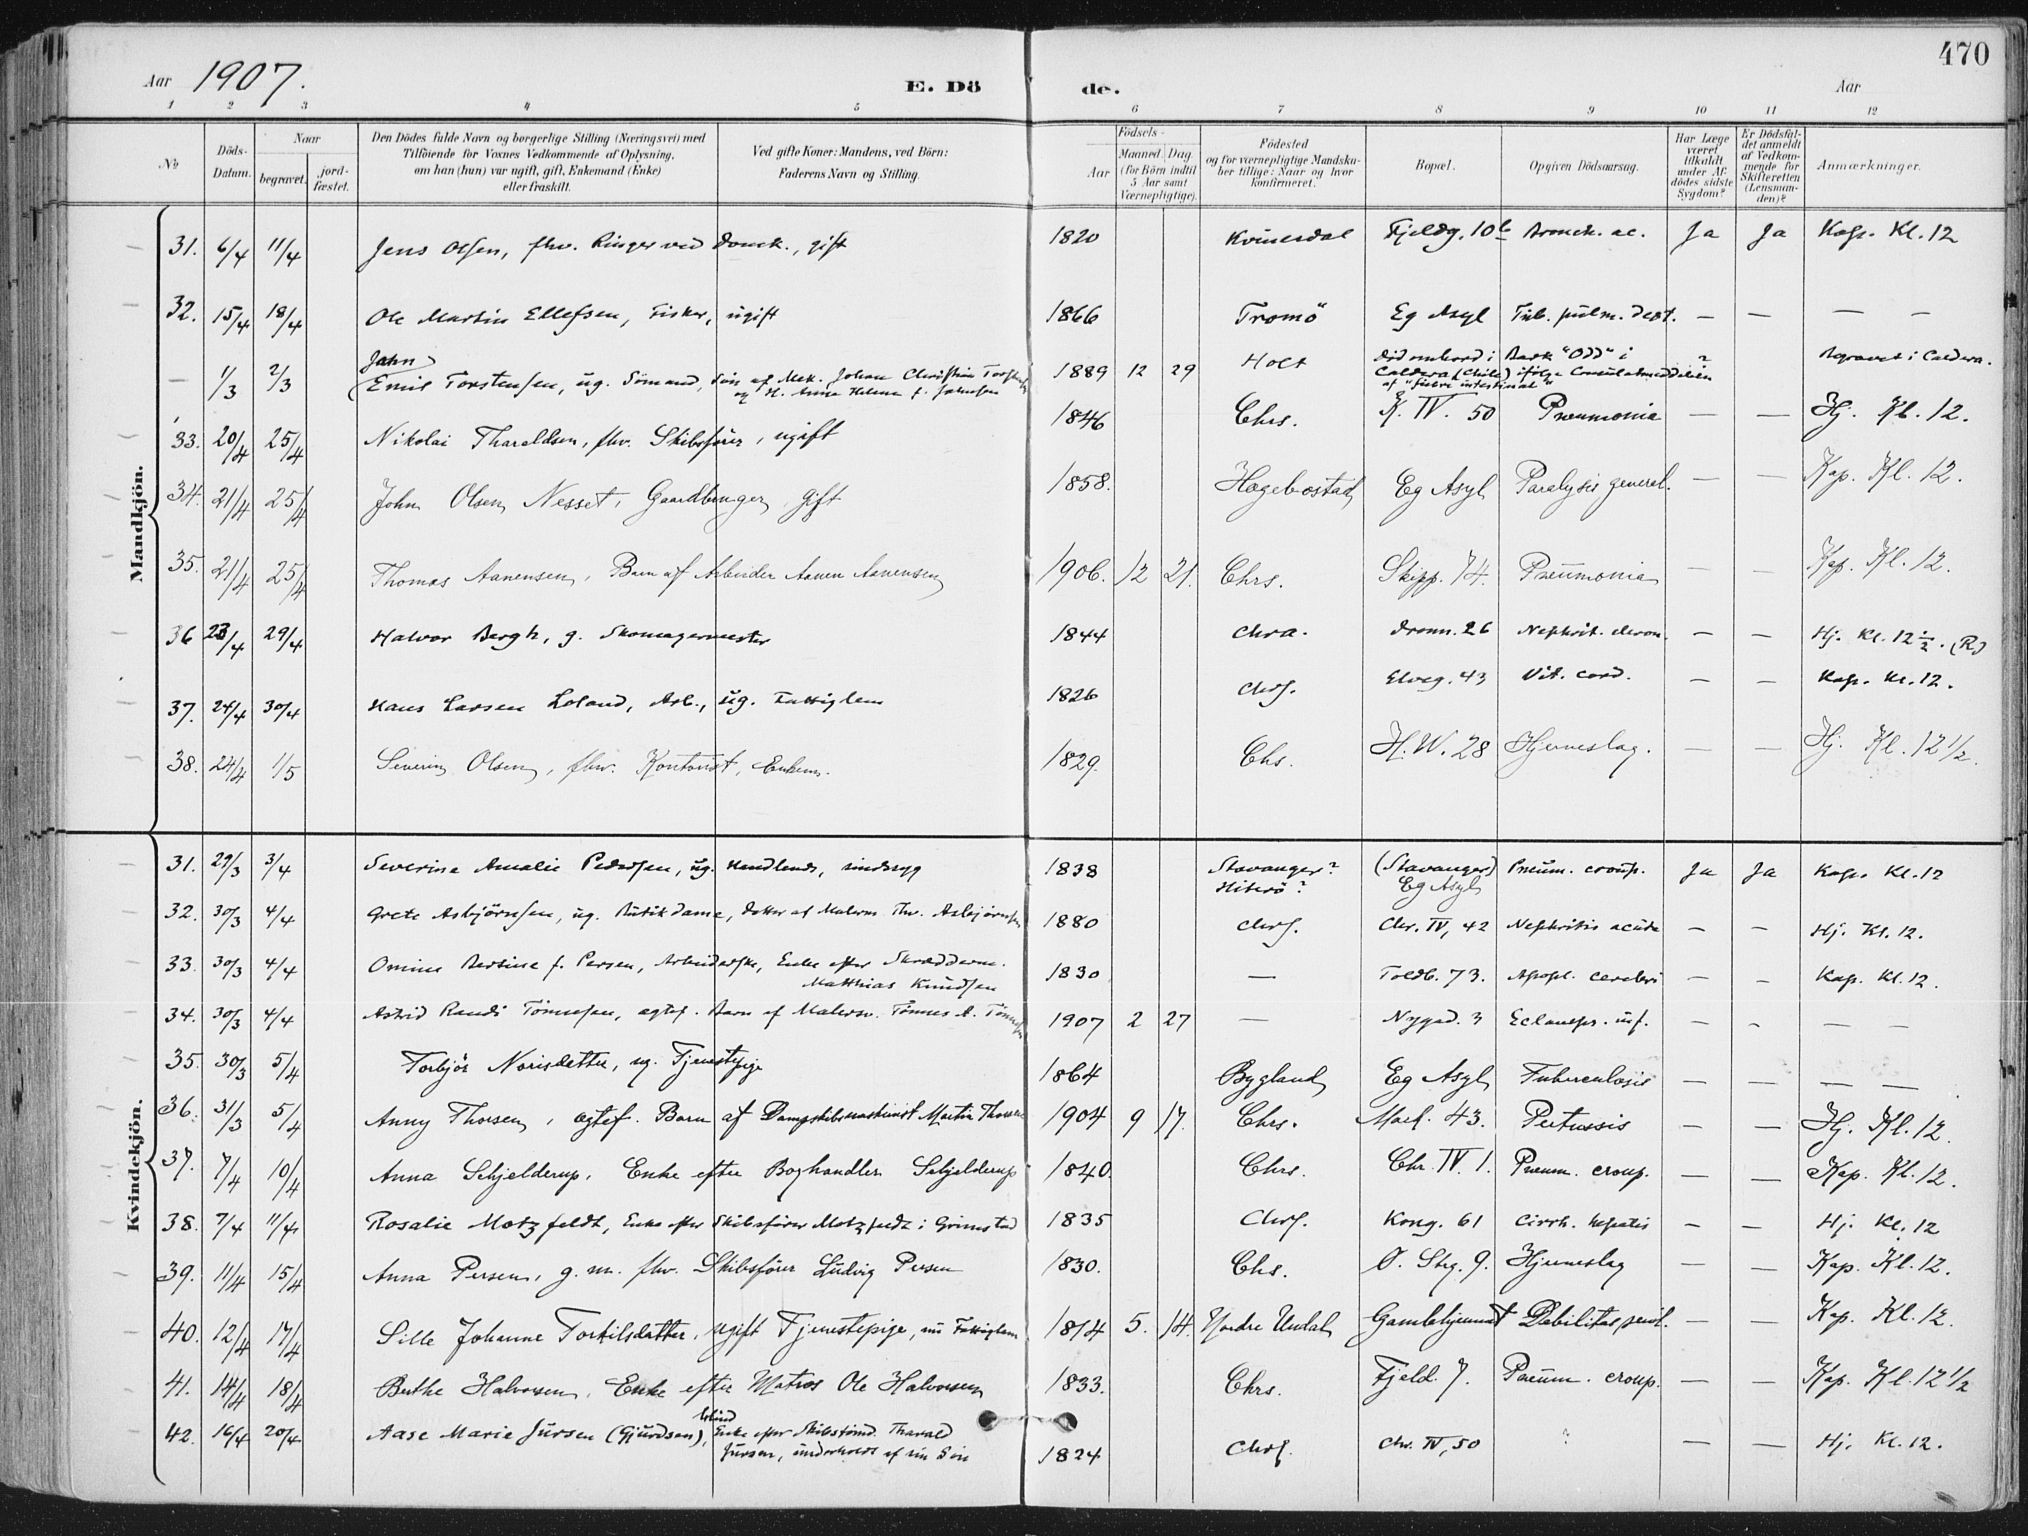 470
Aar 1907. E. Dö de. Aar
1 2 3 4 5 6 7 8 9 10 11 12
No Döds-Datum. Naar begravet. jord-fæstet. Den Dödes fulde Navn og borgerlige Stilling (Næringsvei) med Tilföiende for Voxnes Vedkommende af Oplysning, om han (hun) var ugift, gift, Enkemand (Enke) eller fraskilt. Ved gifte Koner: Mandens, ved Börn: Faderens Navn og Stilling. Födsels- Aar Maaned. Dag. (for Börn indtil 5 Aar samt Værnepligtige). Födested og for værnepligtige Mandskaber tillige: Naar og hvor konfirmeret. Bopæl. Opgiven Dödsaarsag. Har Læge været tilkaldt under Afdödes sidste Sygdom? Er Dödsfaldet anmeldt af Vedkommende for Skifteretten (Lensmanden)? Anmærkninger.
Mandkjön.
31. 6/4 11/4 Jens Olsen, fhv. Ringer ved Domk., gift 1820 Kvinesdal Fjeldg. 10b Bronch. ac. Ja Ja Kap. Kl. 12
32. 15/4 18/4 Ole Martin Ellefsen, Fisker, ugift 1866 Tromö Eg Asyl Tub. pulm. dext. — — — —
Jahn
— 1/3 2/3 (Emil Torstensen, ug. Sömand, Sön af Mek. Johan Christian 1889 12 29 Holt Död ombord i Bark "Odd" i ? Begravet i Caldera.
og H. Anne Helene f. Caldera (Chile) ifølge
af "fiebre intestinal"
33. 20/4 25/4 Nikolai Tharaldsen, fhv. Skibsfører, ugift 1846 Chrs. K. IV. 50 Pneumonia — — Hj. Kl. 12.
34. 21/4 25/4 John Olsen Nesset, Gaardbruger, gift 1858. Hægebostad Eg Asyl Paralysis general. — — Kap. Kl. 12.
35. 21/4 25/4 Thomas Aanensen, Barn af Arbeider Aanen Aanensen 1906. 12 21. Chrs. Skipp. 74. Pneumonia — — Kap. Kl. 12.
36 23/4 29/4 Halvor Bergh, g. Skomagermester 1844 Chra. Dronn. 26 Nephrit. — — Hj. Kl. 12 1/2. (R)
37. 24/4 30/4 Hans Larsen Loland, Arb., ug. Fattiglem 1826 Chrs. Elveg. 43 Vit. cord. — — Kap. Kl. 12.
38. 24/4 1/5 Severin Olsen, fhv. Kontorist, Enkem. 1829. Chs. H. W. 28 Hjerneslag. — — Hj. Kl. 12 1/2.
Kvindekjön.
31. 29/3 3/4 Severine Amalie Pedersen, ug. Handlende, sindssyg 1838 Stavanger? (Stavanger) Pneum. croup. Ja Ja Kap. Kl. 12
Hiterö? Eg Asyl
32. 30/3 4/4 Grete Asbjörnsen, ug. Butikdame, Datter af Malerm. Thv. Asbjörnsen 1880 Chrs. Chr. IV, 42 Nephritis acuta — — Hj. Kl. 12.
33. 30/3 4/4 Omine Bertine f. Persen, Enke efter 1830 — Toldb. 73. Apopl. cerebri — — Kap. Kl. 12.
Matthias Knudsen
34. 30/3 4/4 Astrid Randi Tönnesen, ægtef. Barn af Malersv. Tönnes 1907 2 27 — Nygad. 3 Eclamps. inf. — — — —
35. 30/3 5/4 Torbjör Norisdatter, ug. Tjenestpige 1864 Bygland Eg Asyl Tuberculosis — — — —
36. 31/3 5/4 Anny Thorsen, ægtef. Barn af Dampskibsmaskinist Martin Thorsen 1904 9 17. Chrs. Mark. 43. Pertussis — — Hj. Kl. 12.
37. 7/4 10/4 Anna Schjelderup, Enke efter Boghandler Schjelderup 1840. Chrs. Chr. IV. 1. Pneum. croup. — — Kap. Kl. 12.
38. 7/4 11/4 Rosalie Motzfeldt, Enke efter Skibsförer Motzfeldt i Grimstad 1835 Chrs. Kong. 61 Cirrh. hepatis — — Hj. Kl. 12
39. 11/4 15/4 Anna Persen, g. m. fhv. Skibsförer Ludvig Persen 1830. Chs. Ø. Strg. 9. Hjerneslag — — Kap. Kl. 12.
40. 12/4 17/4 Sille Johanne Torkilsdatter, ugift Tjenestepige, nu Fattiglem 1814 5. 14. Nordre Undal Gamlehjemmet Debilitas senil. — — Kap. Kl. 12.
41. 14/4 18/4 Berthe Halvorsen, Enke efter Matros Ole Halvorsen 1833. Chrs. Fjeld. 7. Pneum. croup. — — Kap. Kl. 12 1/2
blind
42. 16/4 20/4 Aase Marie Jursen (Gjurdsen), Enke efter Skibstömd. Tharald 1824 Chrs. Chr. IV, 50 ? — — Hj. Kl. 12.
Jursen, underholdt af sin Sön